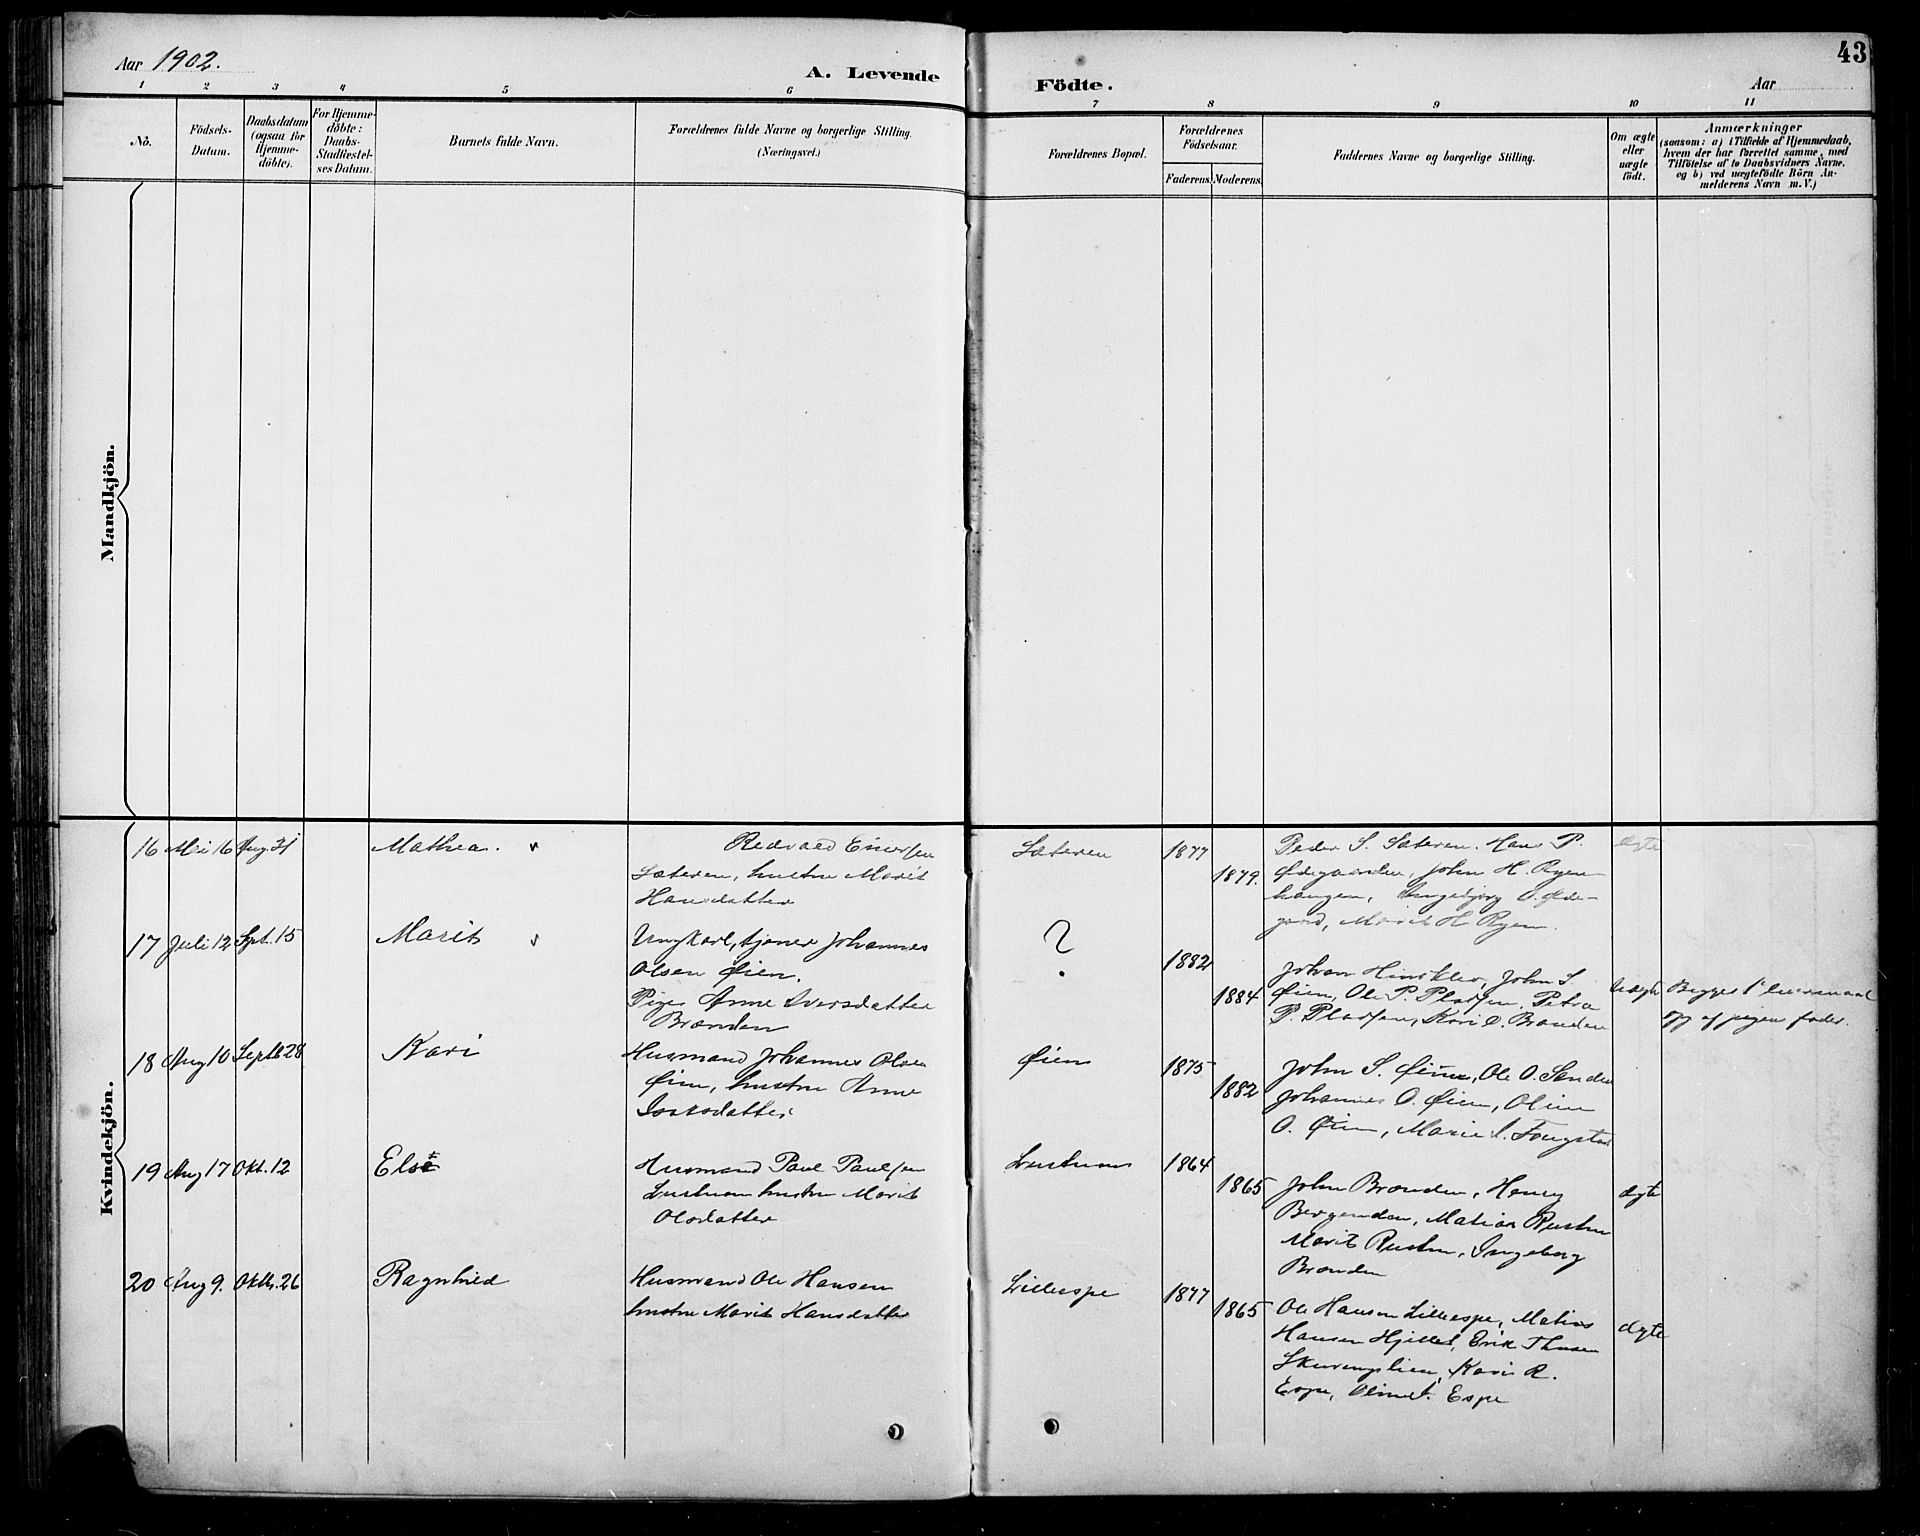 Aar 1902.
A. Levende
Födte.
Aar
43
1 2 3 4 5 6 7 8 9 10 11
No.
Födsels-
Datum.
Daabsdatum
(ogsaa for
Hjemme-
döbte).
For Hjemme-
döbte:
Daabs-
Stadfæstel-
ses Datum.
Barnets fulde Navn.
Forældrenes fulde Navne og borgerlige Stilling.
(Næringsvei.)
Forældrenes Bopæl.
Forældrenes
Födselsaar.
Faderens. Moderens.
Faddernes Navne og borgerlige Stilling.
Om ægte
eller
uægte
födt.
Anmærkninger
(saasom: a) i Tilfælde af Hjemmedaab,
hvem der har forrettet samme, med
Tilföielse af to Daabsvidners Navne,
og b) ved uægtefödte Börn An-
melderens Navn m. V.)
Mandkjön.
Kvindekjön.
16 Mai 16 Aug. 31
Mathea.
Redvald Einersen
Sæteren, hustru Marit
Hansdatter
Sæteren
1877
1879.
Peder S. Sæteren. Hans P.
Ødegaarden, John H. Ryen-
haugen, Ingebjørg O. Øde-
gaard, Marit H. Ryen.
ægte
17 Juli 12 Sept. 15
Marit
Ungkarl, tjener Johannes
Olsen Øien.
Pige Anne Iversdatter
Brænden
?
1882
1884
Johan, John S.
Øien, Ole P. Pladsen, Petra
P. Pladsen, Kari O. Brænden
uægte
Begges 1ste leiermaal
af pigen fader.
18 Aug 10 Septb 28
Kari
Husmand Johannes Olsen
Øien, hustru Anne
Øien
1875
1882
John S. Øien, Ole O. Sande
Johannes O. Øien, Oline
O. Øien, Marie I. Fougstad
19 Aug 17 Okt. 12
Else
Husmand Paul Paulsen
hustru Marit
Olsdatter
1864
1865
John Brænden, Henry
Bergenden, Matias Rusten
Marit Rusten, Ingeborg
Brænden
ægte
20 Aug 9. Oktb. 26
Ragnhild
Husmand Ole Hansen
hustru Marit Hansdatter
Lilleespe
1877
1865
Ole Hansen Lilleespe, Matias
Hansen Hjellet, Erik
Skurenglien, Kari R.
Espe, Oline Espe
ægte